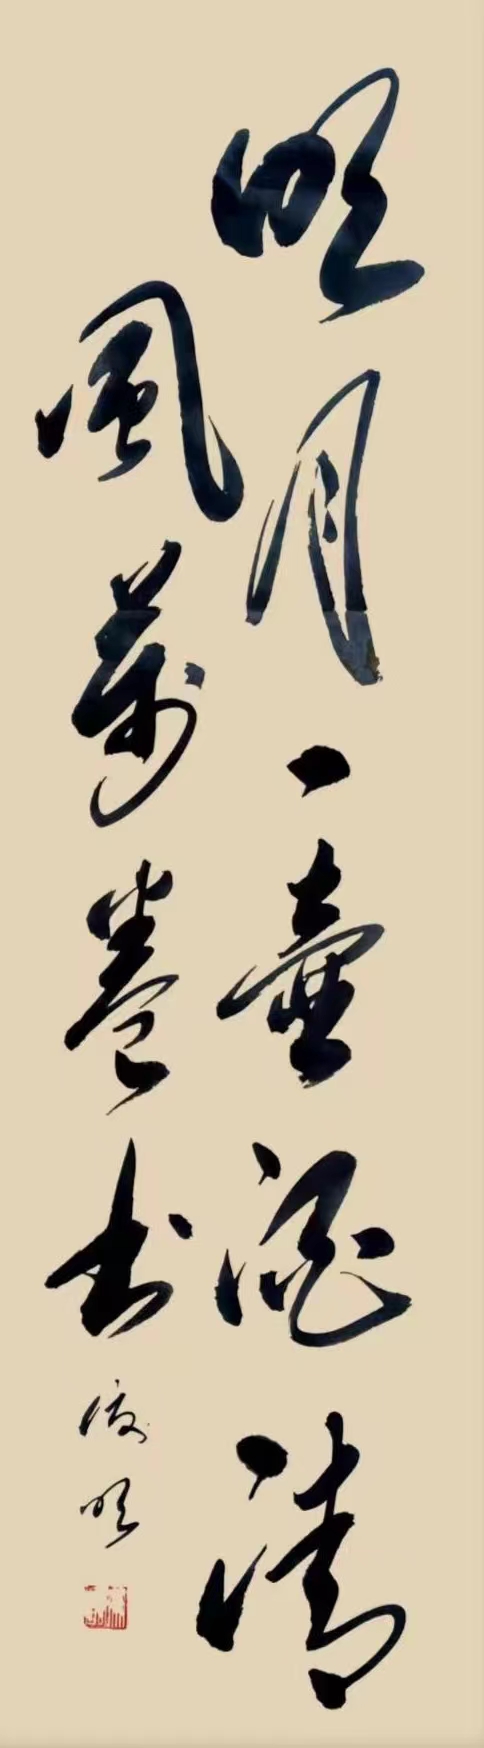 明月一壺酒清
風萬卷书
明